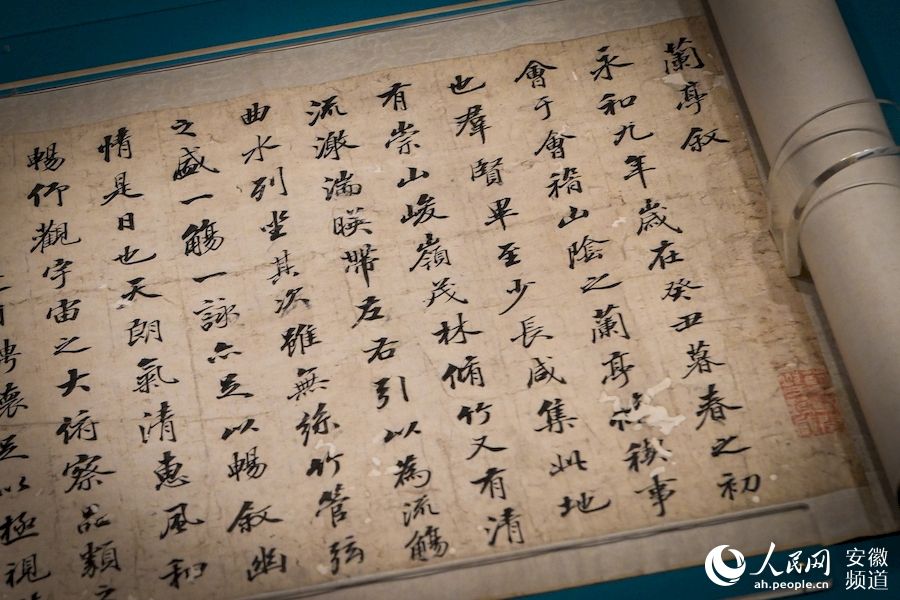 蘭亭叙
永和九年歲在癸丑暮春之初
會于會稽山陰之蘭亭脩禊事
也羣賢畢至少長咸集此地
有崇山峻嶺茂林脩竹又有清
流激湍暎帶左右引以為流觴
曲水列坐其次雖無絲竹管弦
之盛一觴一詠亦足以暢叙幽
情是日也天朗氣清惠風和
暢仰觀宇宙之大俯察品類之
騁懷足以極視
人民网
ah.people.cn
安徽
频道